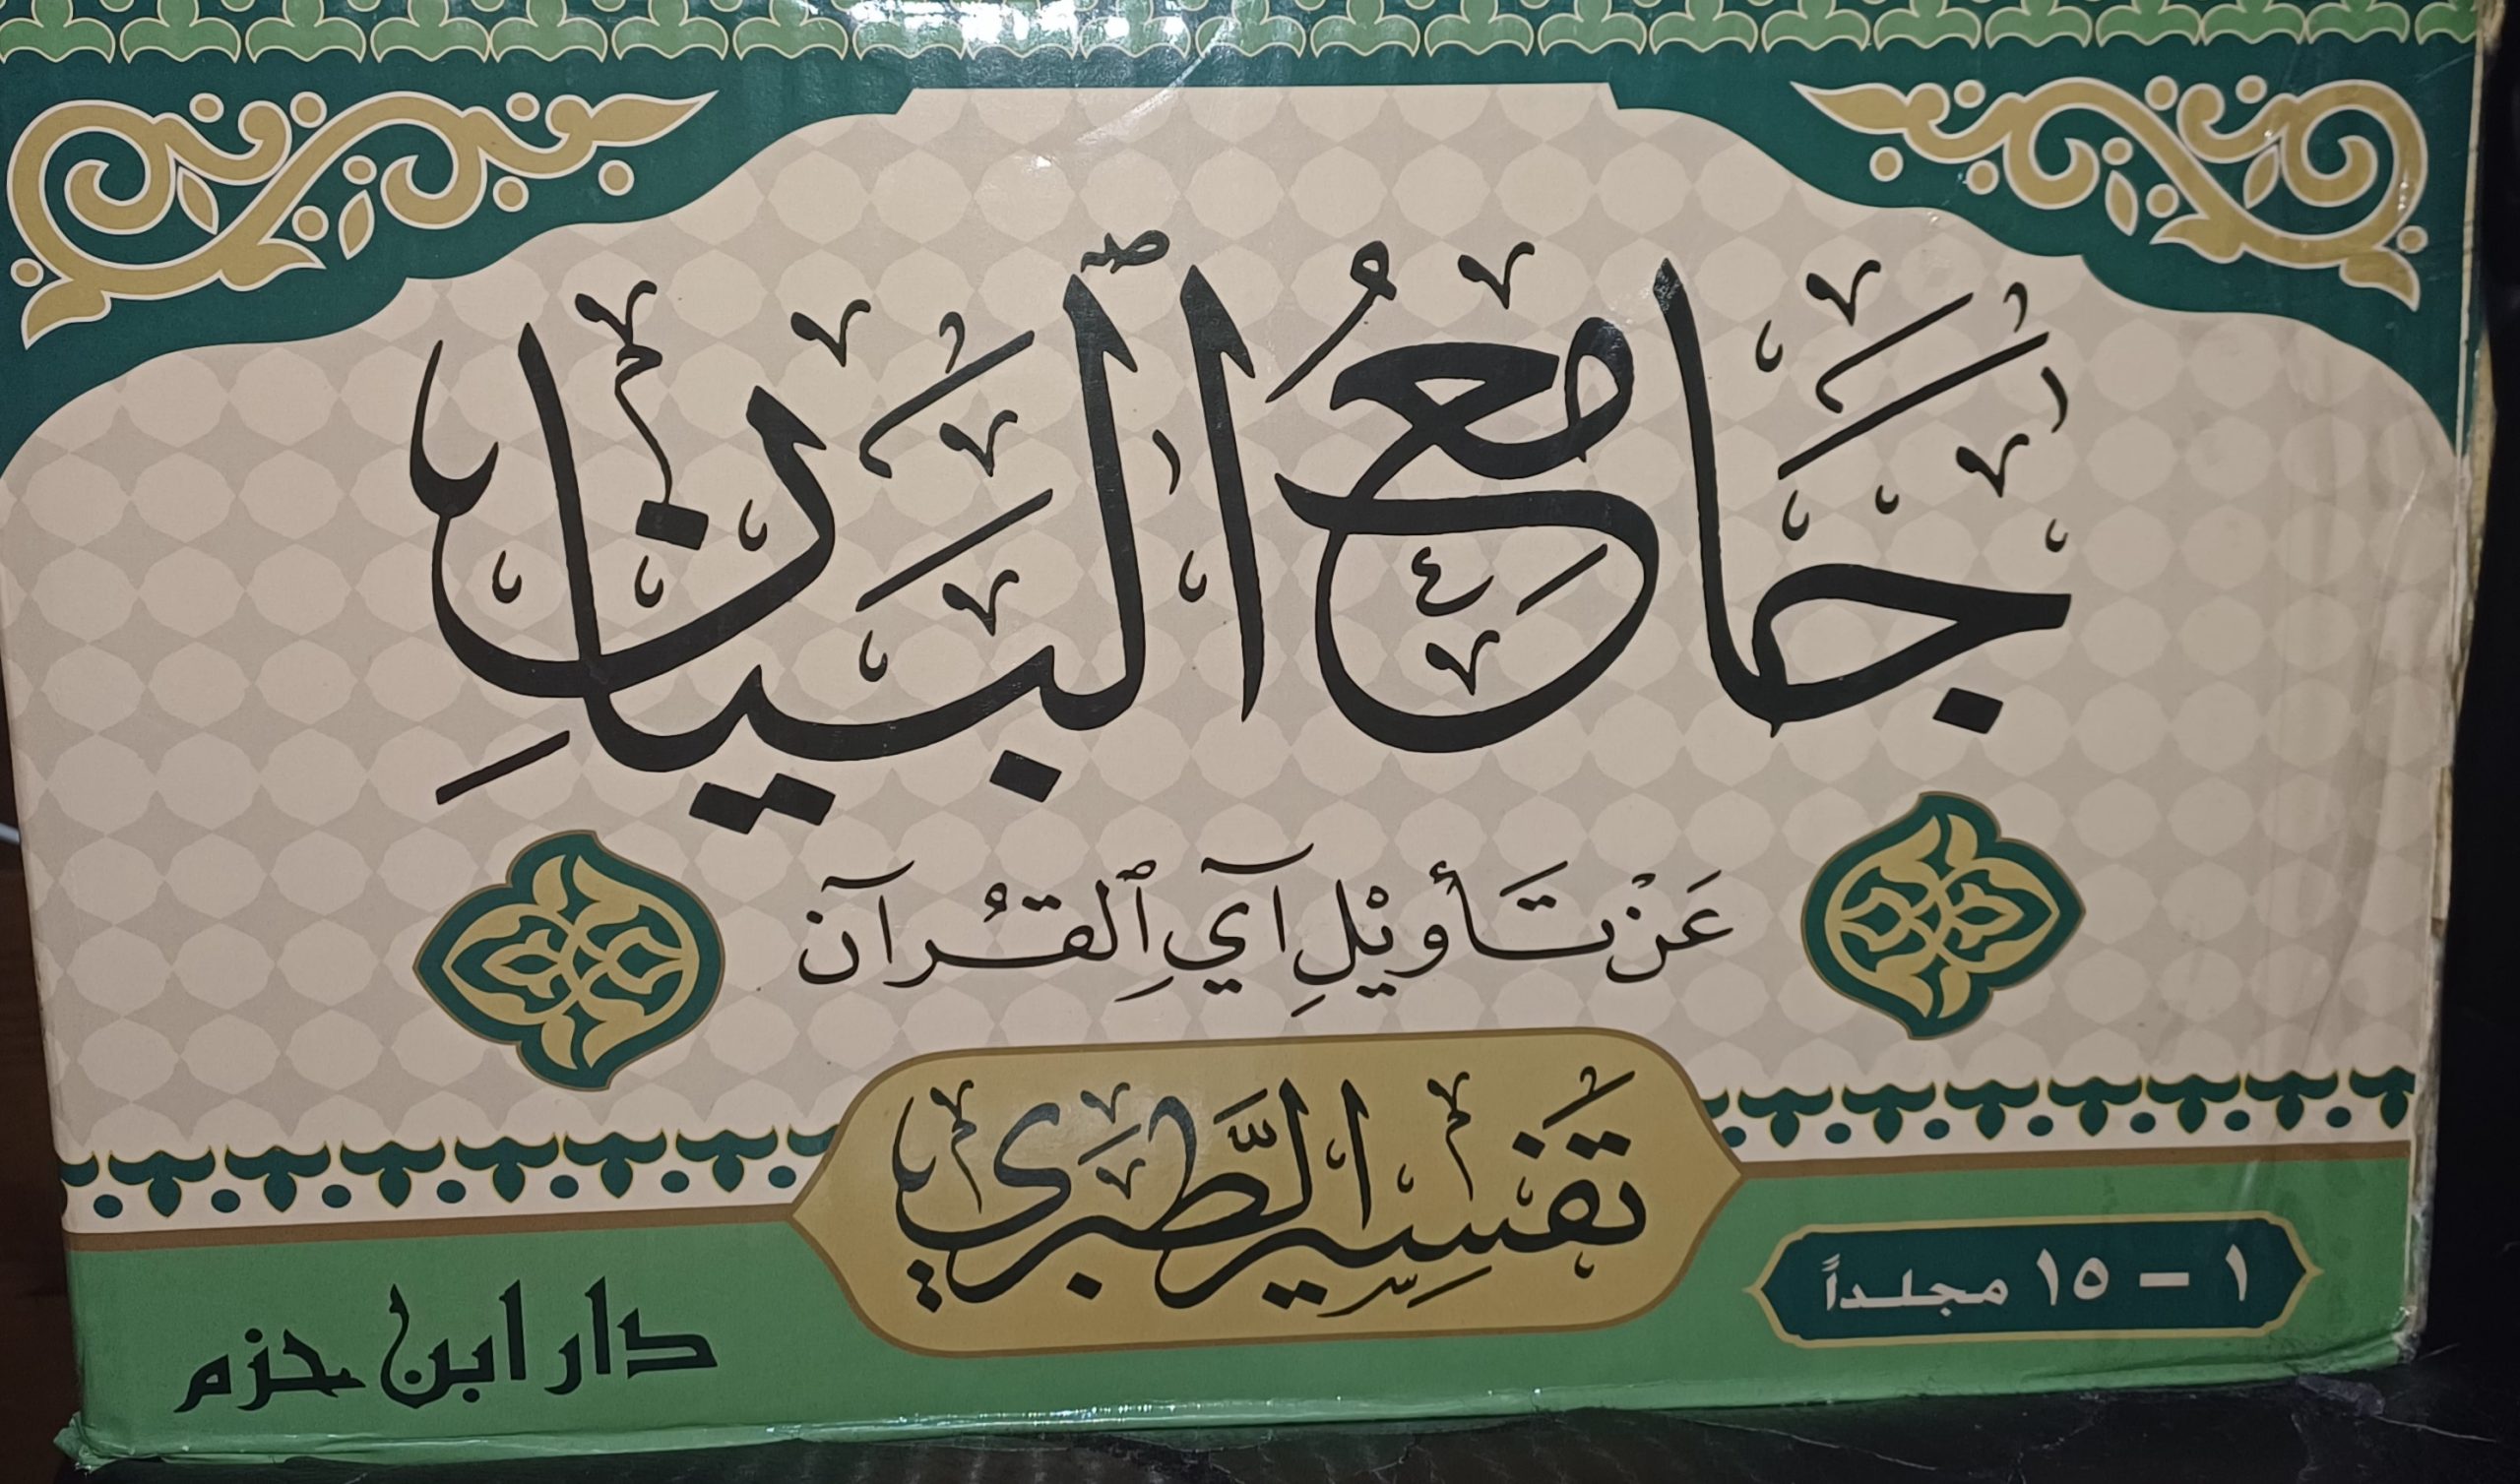 جَامِعُ ٱلْبَيَانِ
عَنْ تَأوِيْلِ آيِ ٱلقُرآن
تَفْسِير الطَّبَرِي
١ - ١٥ مجلداً
دار ابن حزم